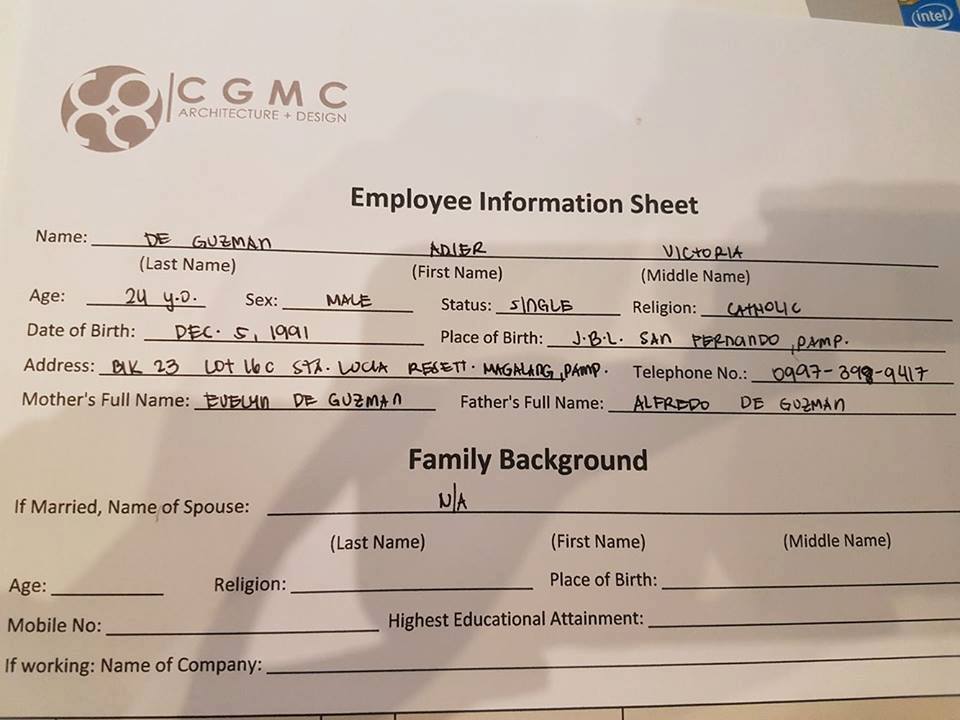 intel
CGMC
ARCHITECTURE + DESIGN
Employee Information Sheet
Name: DE GUZMAN ADIER VICTORIA
(Last Name) (First Name) (Middle Name)
Age: 24 y.o. Sex: MALE Status: SINGLE Religion: CATHOLIC
Date of Birth: DEC. 5, 1991 Place of Birth: J.B.L. SAN FERNANDO, PAMP.
Address: BLK 23 LOT 16C STA. LUCIA RESETT. MAGALANG, PAMP. Telephone No.: 0997-398-9417
Mother's Full Name: EVELYN DE GUZMAN Father's Full Name: ALFREDO DE GUZMAN
Family Background
If Married, Name of Spouse: N/A
(Last Name) (First Name) (Middle Name)
Age: Religion: Place of Birth:
Mobile No: Highest Educational Attainment:
If working: Name of Company: